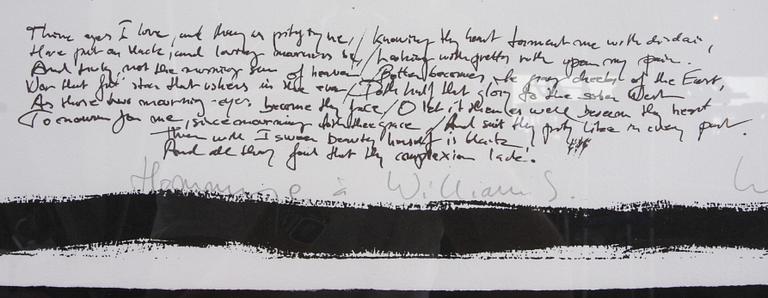 Thine eyes I love, and they as pitying me, / Knowing thy heart torment me with disdain,
Have put on black, and loving mourners be, / Looking with pretty ruth upon my pain.
And truly not the morning sun of heaven / Better becomes the grey cheeks of the East,
Nor that full star that ushers in the even / Doth half that glory to the sober West
As those two mourning eyes become thy face / O let it then as well beseem thy heart
To mourn for me, since mourning doth thee grace / And suit thy pity like in every part.
Then will I swear beauty herself is black
And all they foul that thy complexion lack!
Hommage à William S.